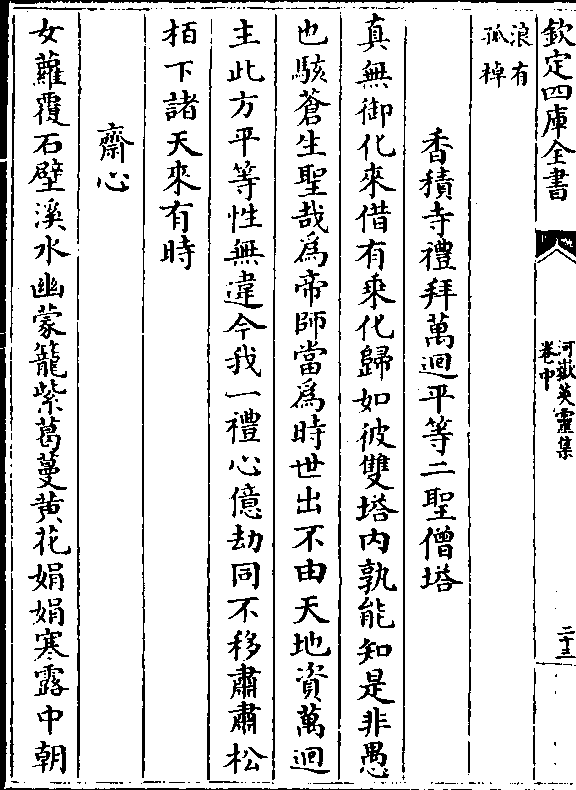 欽定四庫全書
河嶽英靈集
卷中
二十三
浪有
孤棹
香積寺禮拜萬迴平等二聖僧塔
真無御化來借有乘化歸如彼雙塔內孰能知是非愚
也駭蒼生聖哉為帝師當為時世出不由天地資萬迴
主此方平等性無違今我一禮心億劫同不移肅肅松
栢下諸天來有時
齋心
女蘿覆石壁溪水幽蒙籠紫葛蔓黄花娟娟寒露中朝